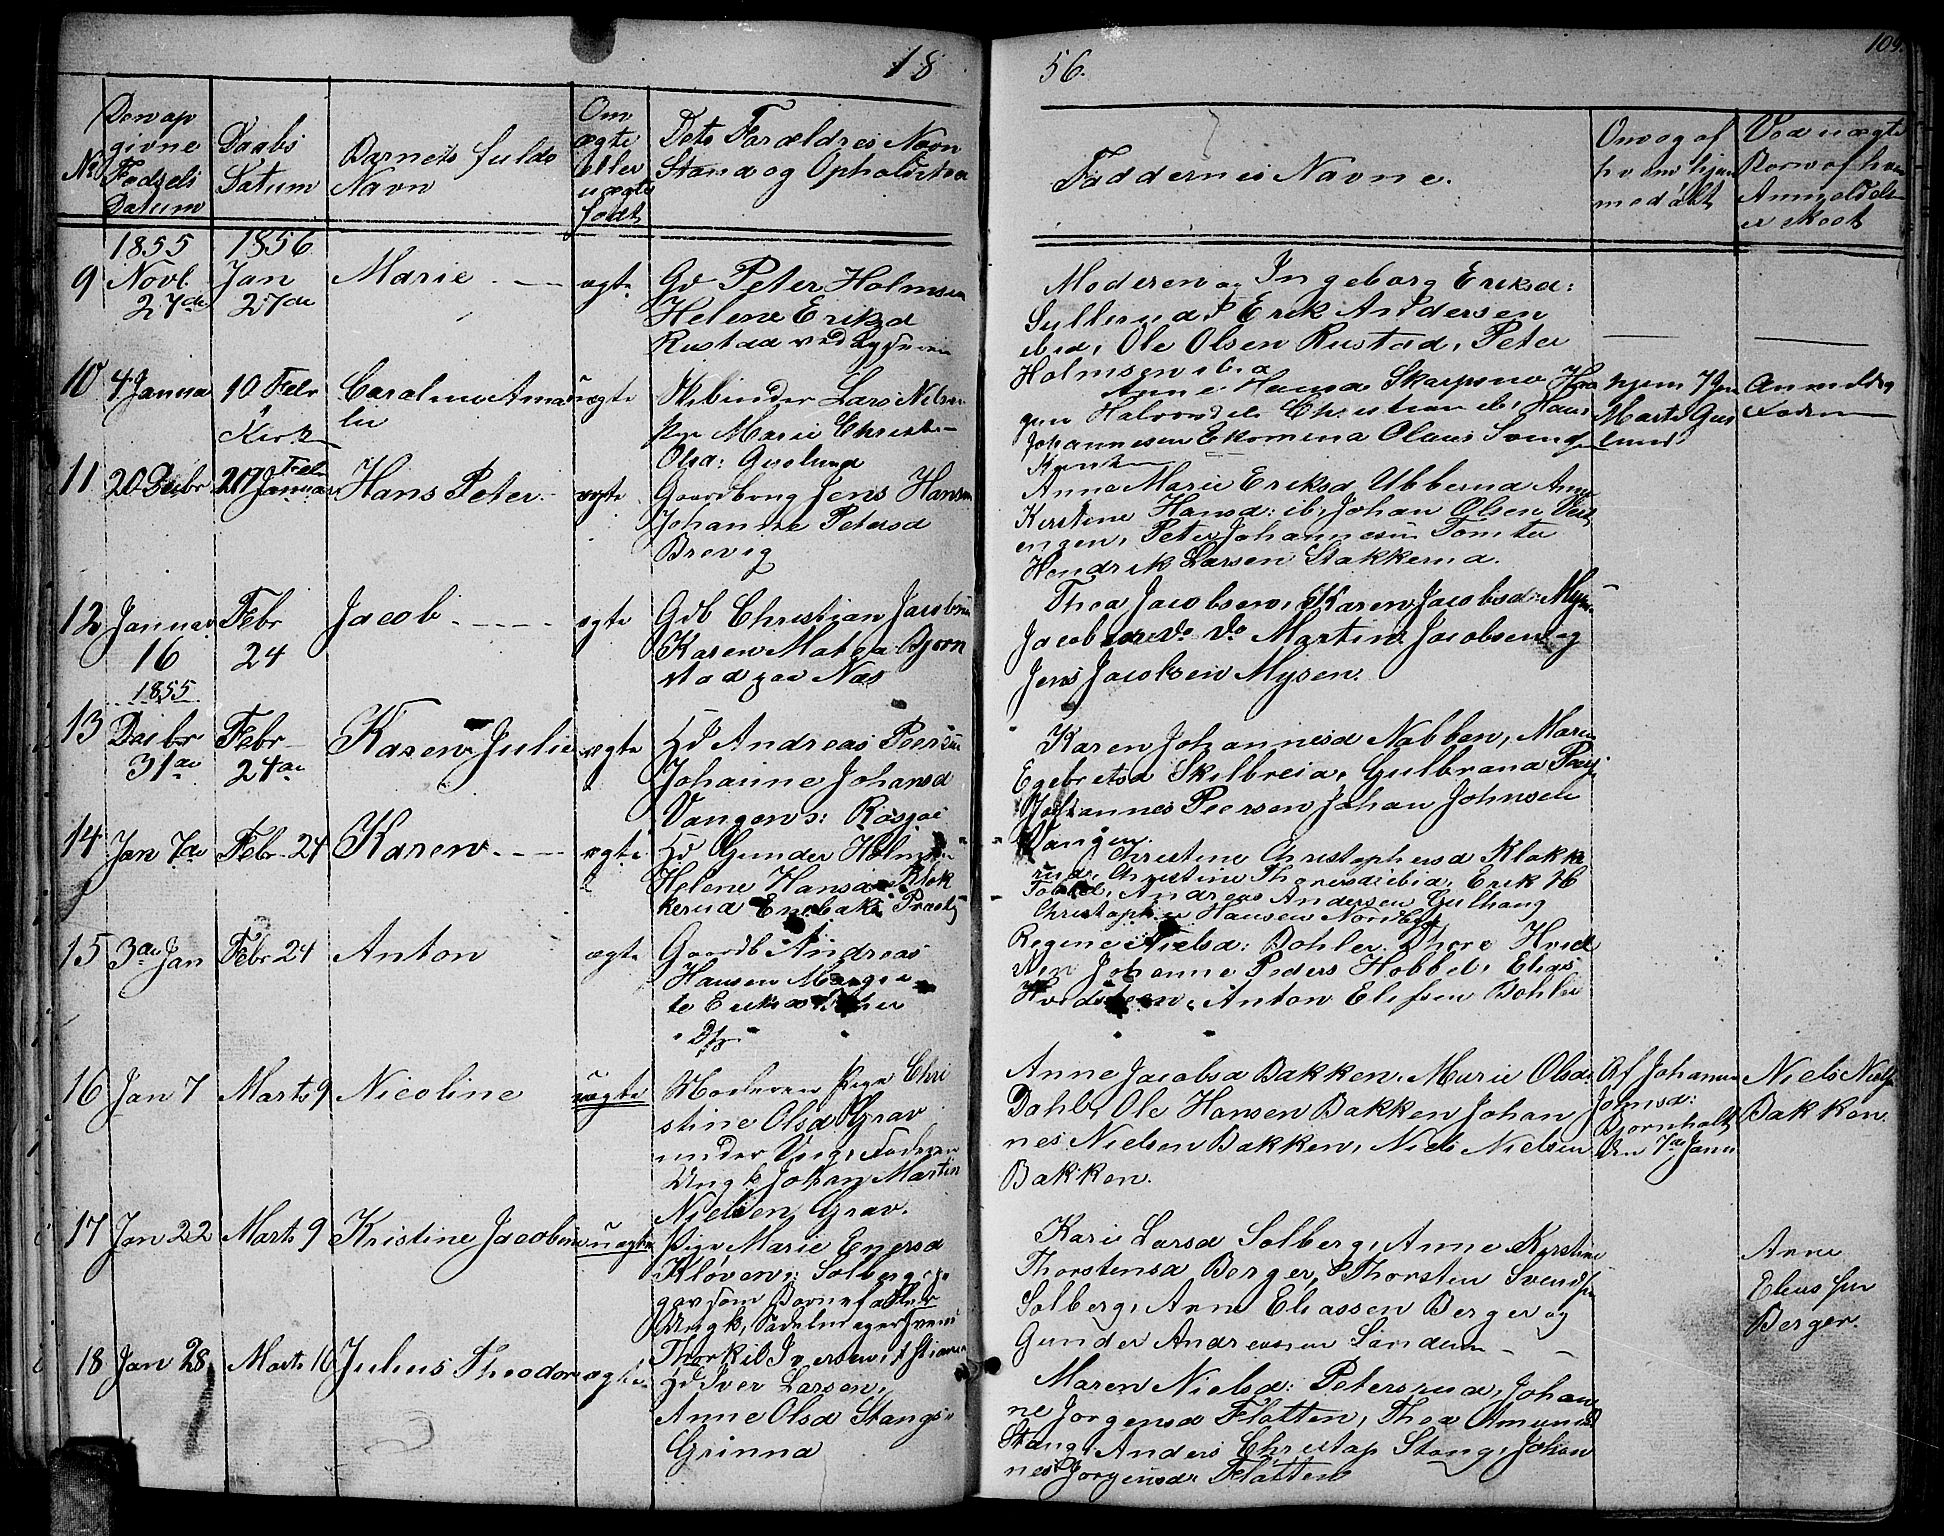 18
56.
109.
No
Den op
givne
Fødsels
Datum
Daabs
Datum
Barnets fulde
Navn
Om
ægte
eller
uægte
født
Dets Forældres Navn
Stand og Opholdsted
Faddernes Navne.
Om og af
hvem hjem
medøbt
Ved uægte
Børn af hvem
Anmeldels
er skeet
1855
1856
9 Novb. 27de
Jan 27de
Marie
ægte
Gd Peter Holmsen
Helene Eriksd
Rustad ved
Moderen og Ingeborg Eriksd:
Erik Andersen
ibid, Ole Olsen Rustad, Peter
Holmsen ibid
10 4 Januar
10 Febr
i
Kirk
Caroline Ama
lie
uægte
Lars Nilsen
Pige Marie Christi
Olsd: Guslund
Anne Hansd Skarpsno
Halvorsd ib Christian ib, Hans
Johannesen Ekornrud Olaus Svends
hjem 7 Jan
Marte Gus
lund
Anmeldt af
Faderen
11 20 Decbr
27 Januar
Febr
Hans Peter
ægte
Gaardbrug Jens Hansen
Johanne Petersd
Brevig
Anne Marie Eriksd Ubberud Anne
Kerstine Hansd: ib, Johan Olsen
engen, Peter Johannesen Tomter
Hendrik Larsen Stakkerud.
12 Januar
16
Febr
24
Jacob
ægte
Gdb Christian Jacobsen
Karen Matea Bjørn
stad paa Næs
Thea Jacobsen, Karen Jacobsd: Mysen
Jacobsen do do Martin Jacobsen og
Jens Jacobsen Mysen.
1855
13 Decbr
31de
Febr
24de
Karen Julie
ægte
Hd Andreas Peersen
Johanne Johansd
Vangen s: Rosjøe
Karen Johannesd Nabben, Maren
Egebretsd Skilbreia, Gulbrand
Johannes Peersen Johan Johnsen
Vangen
14 Jan 7de
Febr 24
Karen
ægte
Hd Gunder Holmsen
Helene Hansd Klok
kerud Enebaks Præstg
Christine Christophersd Klokke
rud, Christine Thoresd ibid, Erik H
Andreas Andersen Gulhaug
Christopher Hansen Nordby
15 3de Jan
Febr 24
Anton
ægte
Gaardb Andreas
Hansen Margre
te Eriksd
Regine Nielsd: Bøhler Thore Hvid
sten Johanne Peders Hobbel, Elias
Hvidsteen, Anton Elefsen Bøhler
16 Jan 7
Marts 9
Nicoline
uægte
Moderen Pige Chri
stine Olsd Grav
under Vug, Faderen
Ungk Johan Martin
Nielsen Grav.
Anne Jacobsd Bakken, Marie Olsd
Dahl, Ole Hansen Bakken Johan
nes Nielsen Bakken, Niels Nielsen
Bakken.
Af Johanne
Johnsd:
Bjørnholt
den 7de Janu
Niels Niels
Bakken.
17 Jan 22
Marts 9
Kristine Jacobine
uægte
Pige Marie Enersd
Kløven: Solberg,
gav som Barnefader
Ungk, Sadelmager Svend
Thorkil Iversen
Kari Larsd Solberg, Anne Kerstine
Thorstensd Berger, Thorsten Svends
Solberg, Arne Eliassen Berger og
Gunder Andreassen Sandem
Arne
Elias sen
Berger.
18 Jan 28
Marts 16
Julius Theodor
ægte
Hd Iver Larsen,
Anne Olsd Stangs
Grinna
Maren Nielsd: Petersrud, Johan
ne Jorgensd Flatten, Thea Amunds
Stang, Anders Christop Stang, Johan
nes Jorgensd: Flatten